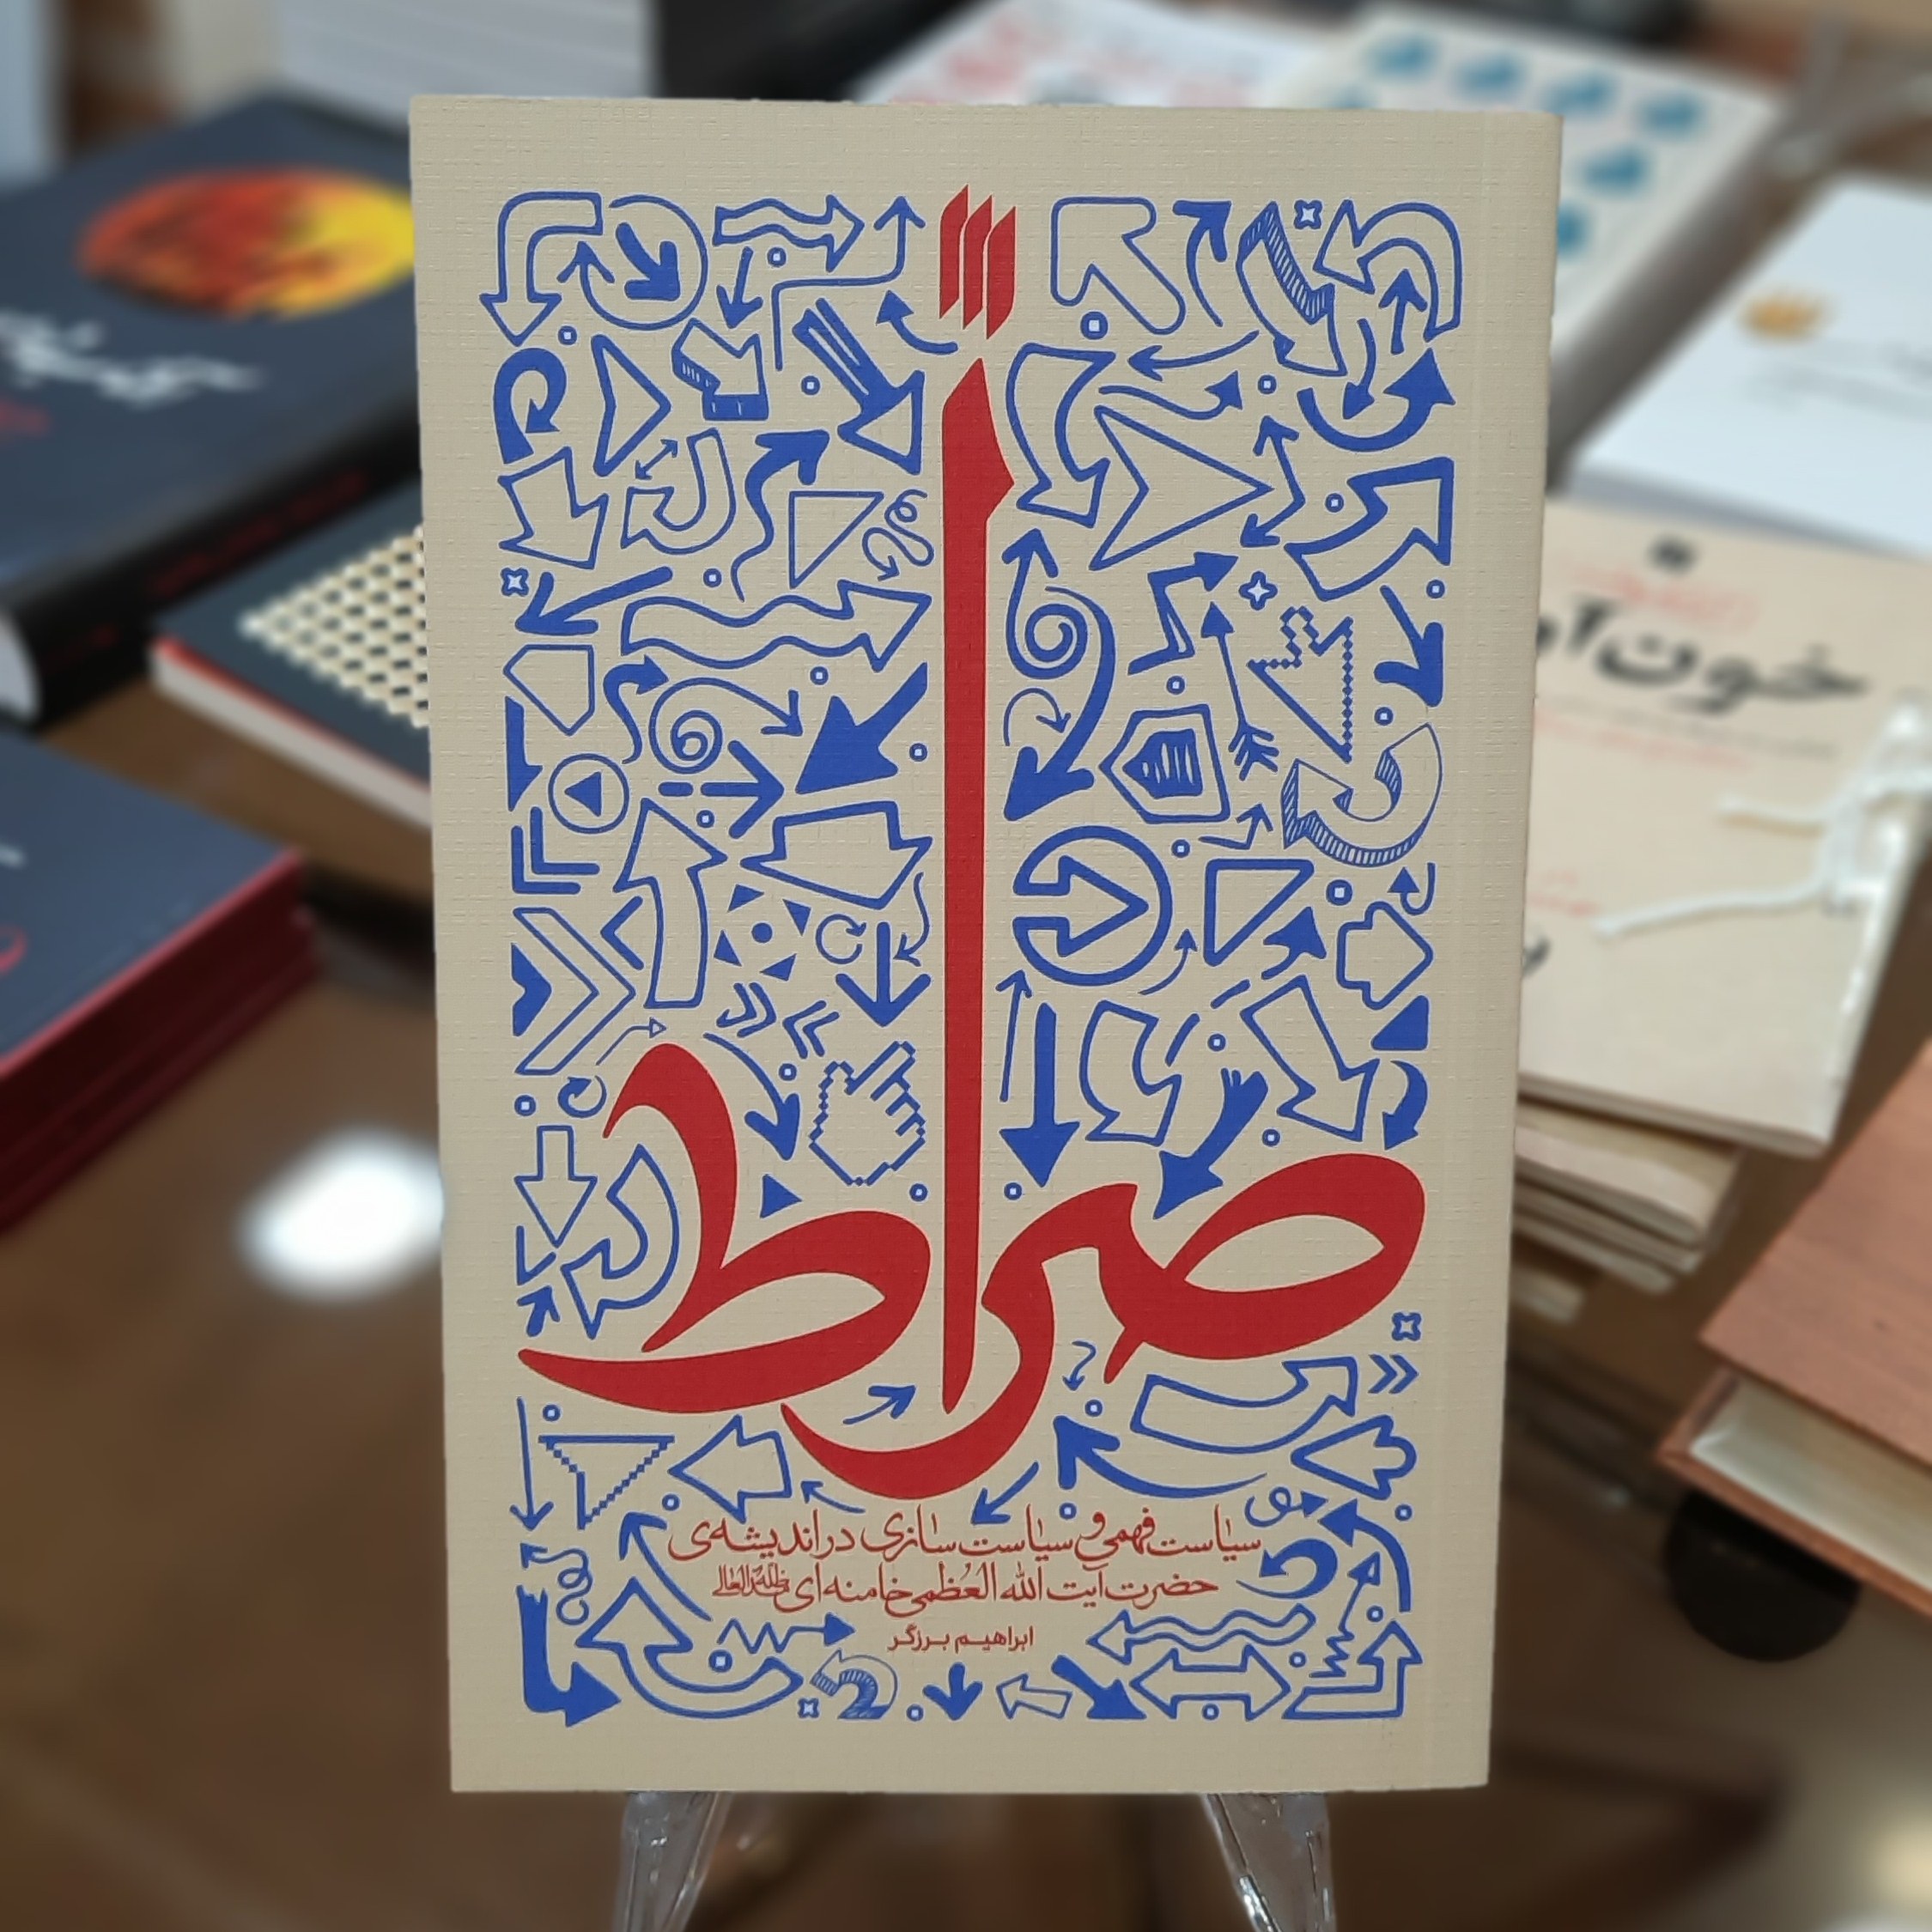 صراط
سیاست‌فهمی و سیاست‌سازی در اندیشه‌ی
حضرت آیت الله العظمی خامنه‌ای مدظله‌العالی
ابراهیم برزگر
خون